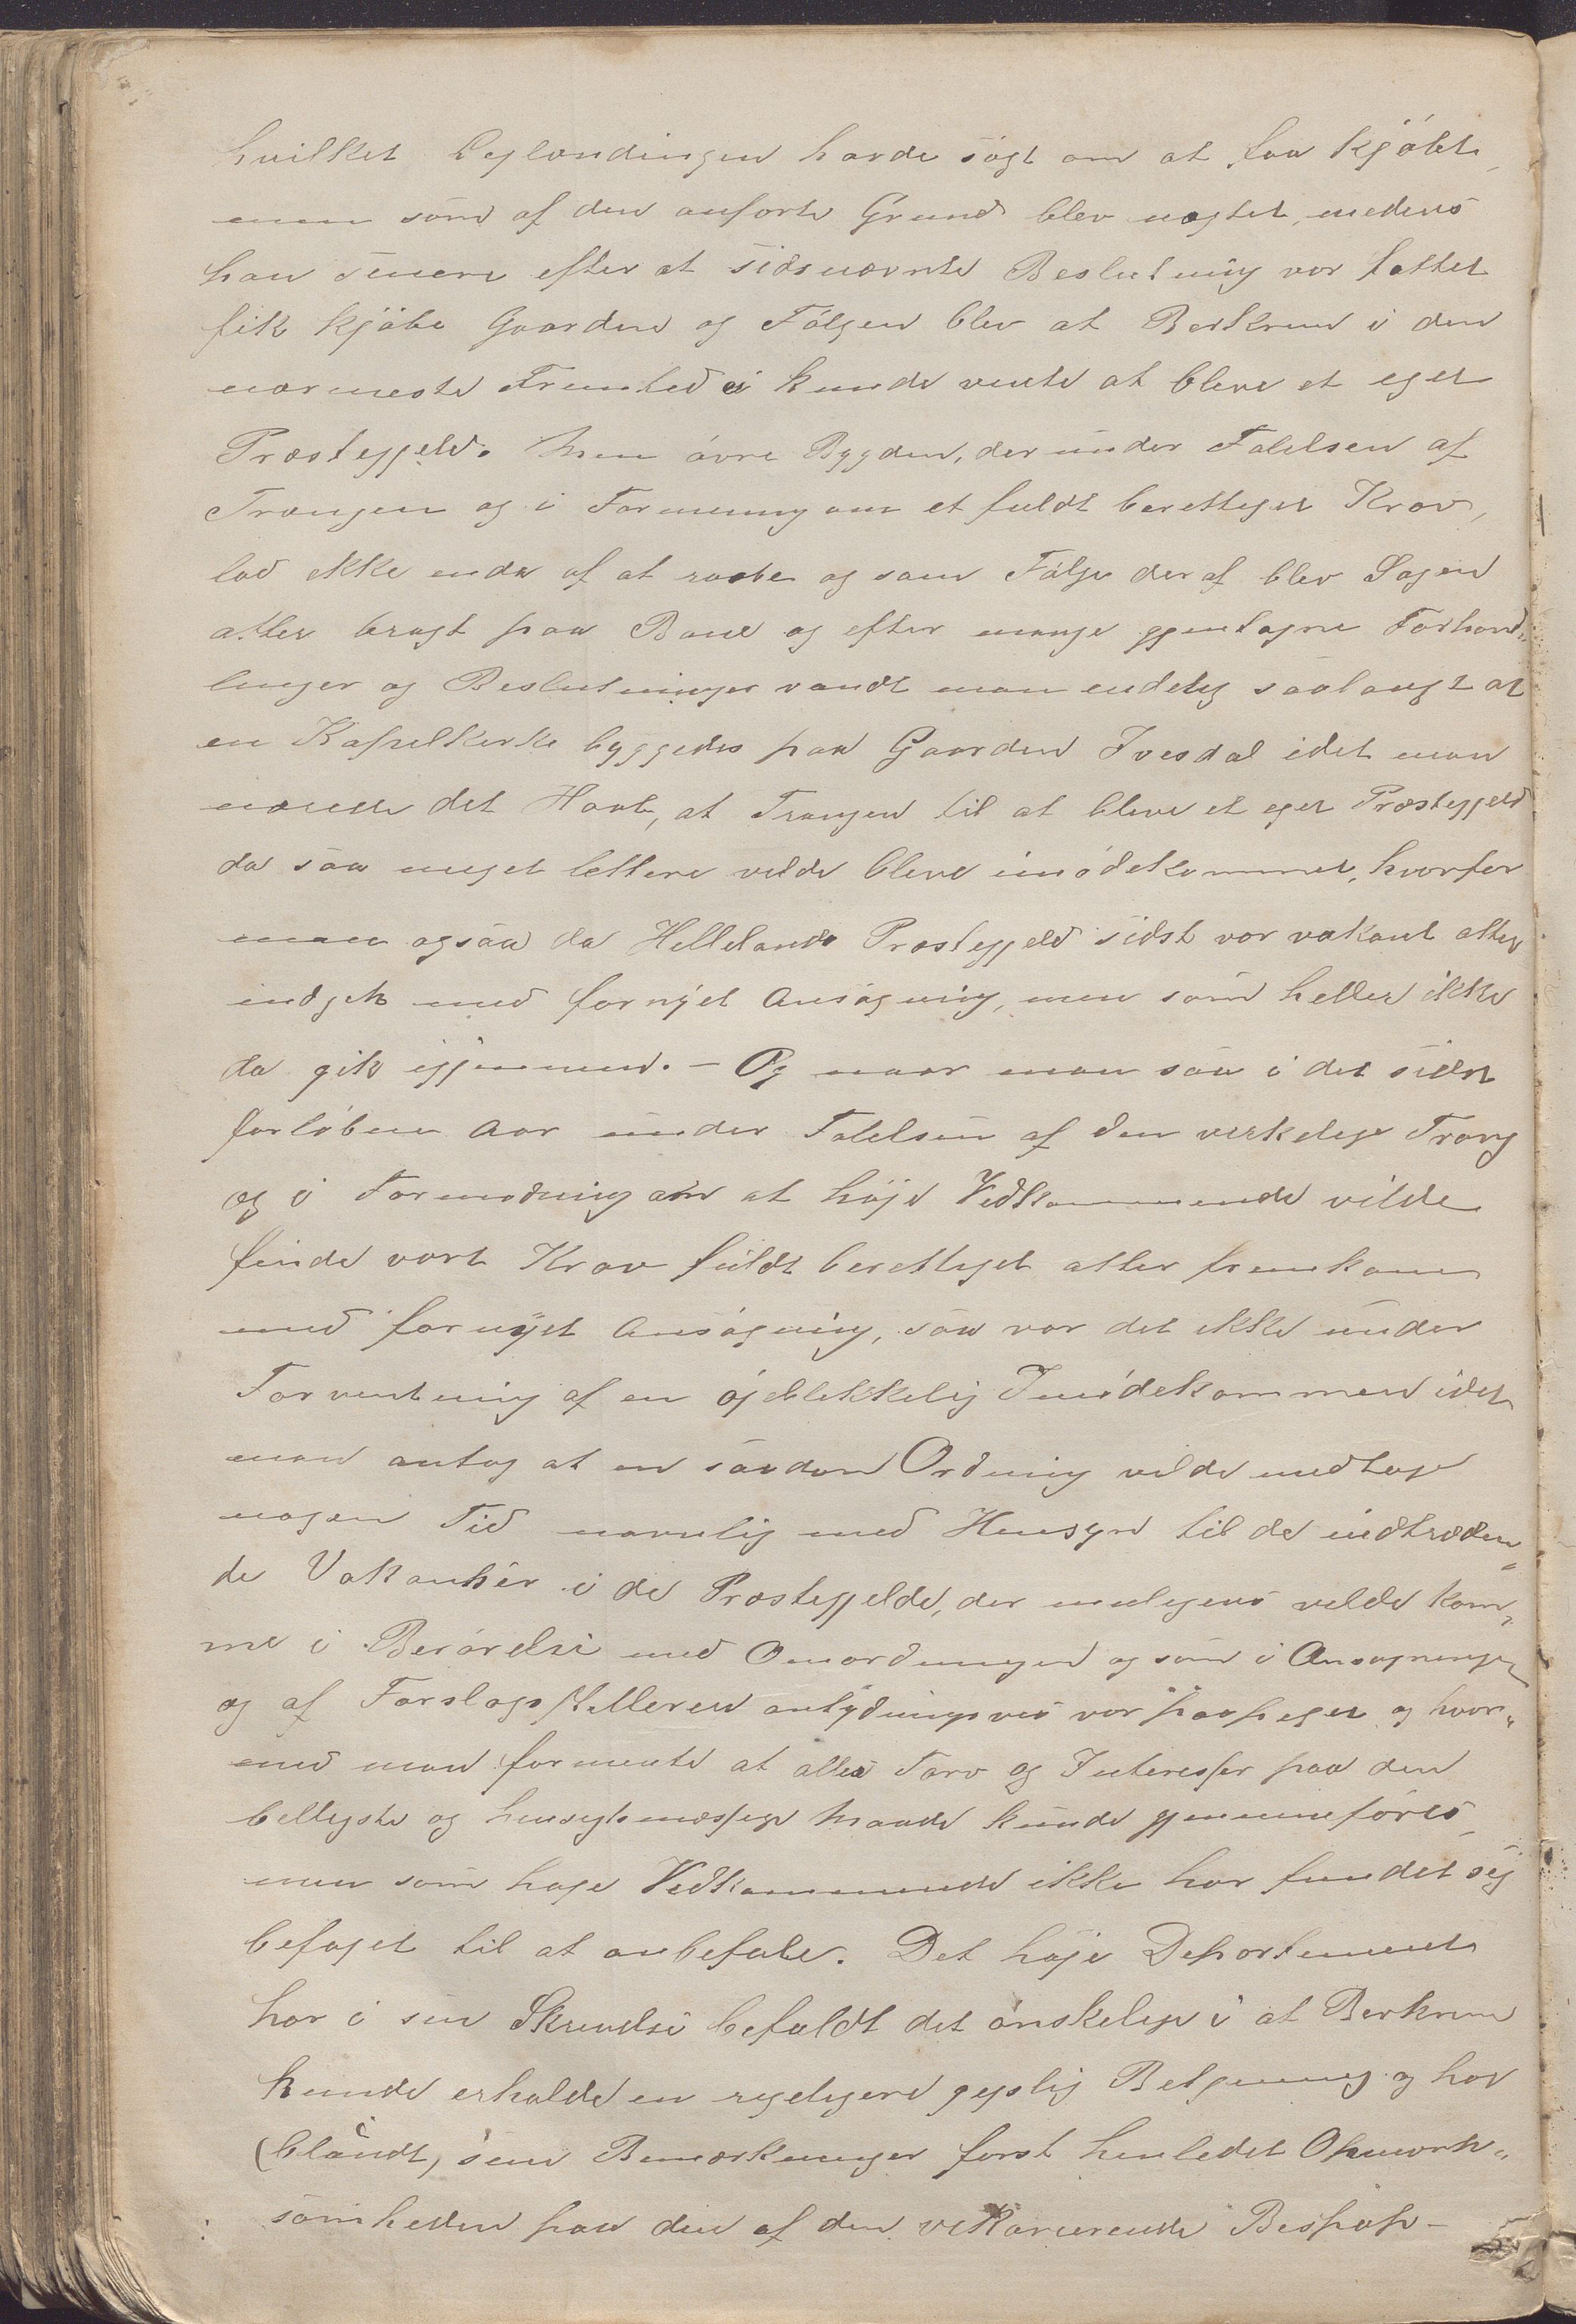 hvilket Leglændingen havde søgt om at faa kjøbt,
men som af den anførte Grund blev nægtet, medens
han senere efter at sidsnævnte Beslutning var fattet
fik kjøbe Gaarden og Følgen blev at Berkrem i den
nærmeste Fremted ei kunde vente at bleve et eget
Præstegjeld. Men øvre Bygden, der under Følelsen af
Trangen og i Formening om et fuldt berettiget Krav,
lod ikke enda af at raabe og som Følge deraf blev Sagen
atter bragt paa Bane og efter mange gjentagne Forhand„
linger og Beslutninger vandt man endelig saalangt at
en Kapelkirke byggedes paa Gaarden Ivesdal idet man
nærede det Haab, at Trangen til at bleve et eget Præstegjeld
da saa meget lettere vilde bleve imødekommet, hvorfor
man ogsaa da Hellelands Præstegjeld sidst var vakant atter
indgik med fornyet Ansøgning, men som heller ikke
da gik igjennem. – Og naar man saa i det sidst
forløbne Aar under Følelsen af den verkelige Trang
og i Formodning om at høje Vedkommende vilde
finde vort Krav fuldt berettiget atter fremkom
med fornyet Ansøgning, saa var det ikke under
Forventning af en øjeblikkelig Imødekommen idet
man antog at en saadan Ordning vilde medtage
nogen Tid navnlig med Hensyn til de indtræden„
de Vakanser i de Præstegjelde, der muligens vilde kom„
me i Berørelse med Omordningen og som i Ansøgningen
og af Forslagsstilleren antydningsvis var paapeget og hvor„
med man formente at alles Tarv og Interesser paa den
belligste og hensigtsmæssige Maade kunde gjennemføres,
men som høje Vedkommende ikke har fundet sig
beføjet til at anbefale. Det høje Departement
har i sin Skrivelse befuldt det ønskelige i at Berkrem
kunde erholde en rigeligere geistlig Betjening og har
(blandt) sine Bemærkninger først henledet Opmærk„
somheden paa den af den vikarierende Biskop